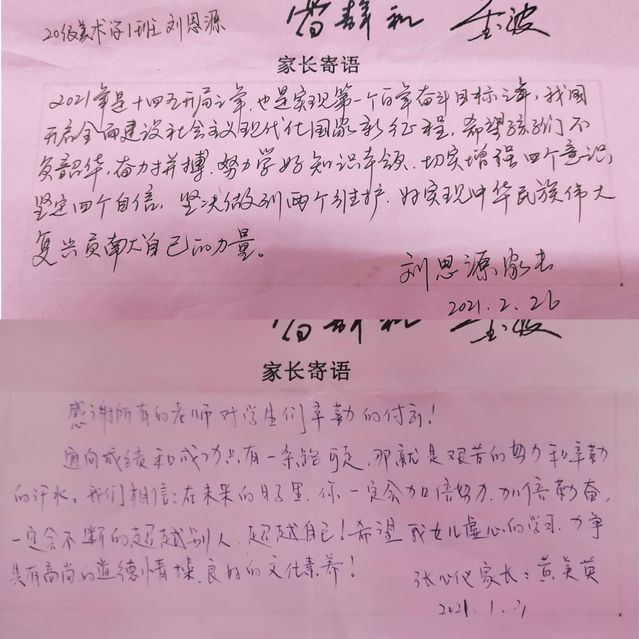 20级美术学1班 刘思源
曾群和 金波
家长寄语
2021年是十四五开局之年,也是实现第一个百年奋斗目标之年,我国
开启全面建设社会主义现代化国家新征程,希望孩子们不
负韶华,奋力拼搏,努力学好知识本领,切实增强四个意识
坚定四个自信,坚决做到两个维护,为实现中华民族伟大
复兴贡献自己的力量。
刘思源家长
2021.2.26
家长寄语
感谢所有的老师对学生们辛勤的付出!
通向成绩和成功只有一条路可走,那就是艰苦的努力和辛勤
的汗水。我们相信:在未来的日子里,你一定会加倍努力,加倍勤奋,
一定会不断的超越别人,超越自己!希望我女儿虚心的学习,力争
具有高尚的道德情操,良好的文化素养!
家长:黄美英
2021.